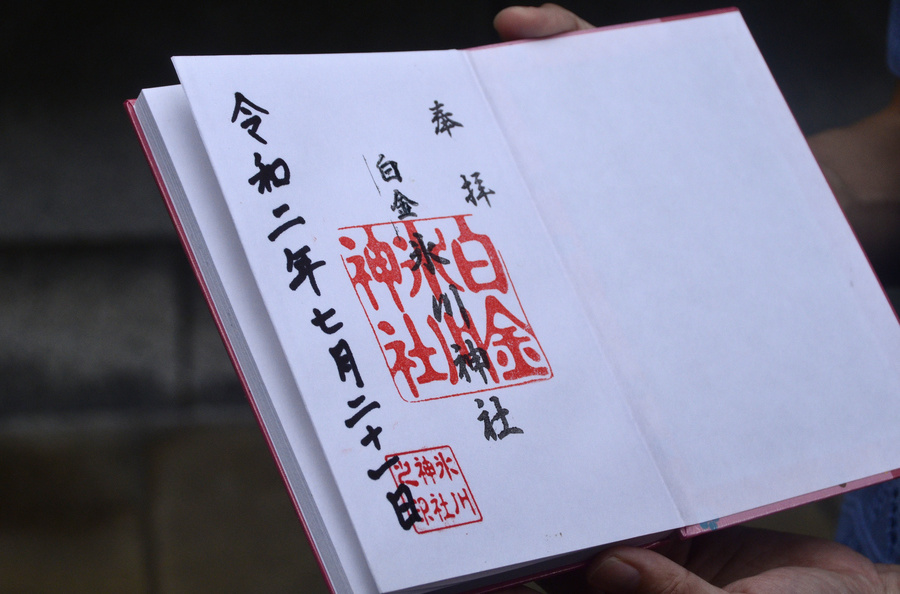 奉拝
白金氷川神社
白金
氷川
神社
令和二年七月二十一日
氷川
神社
之印